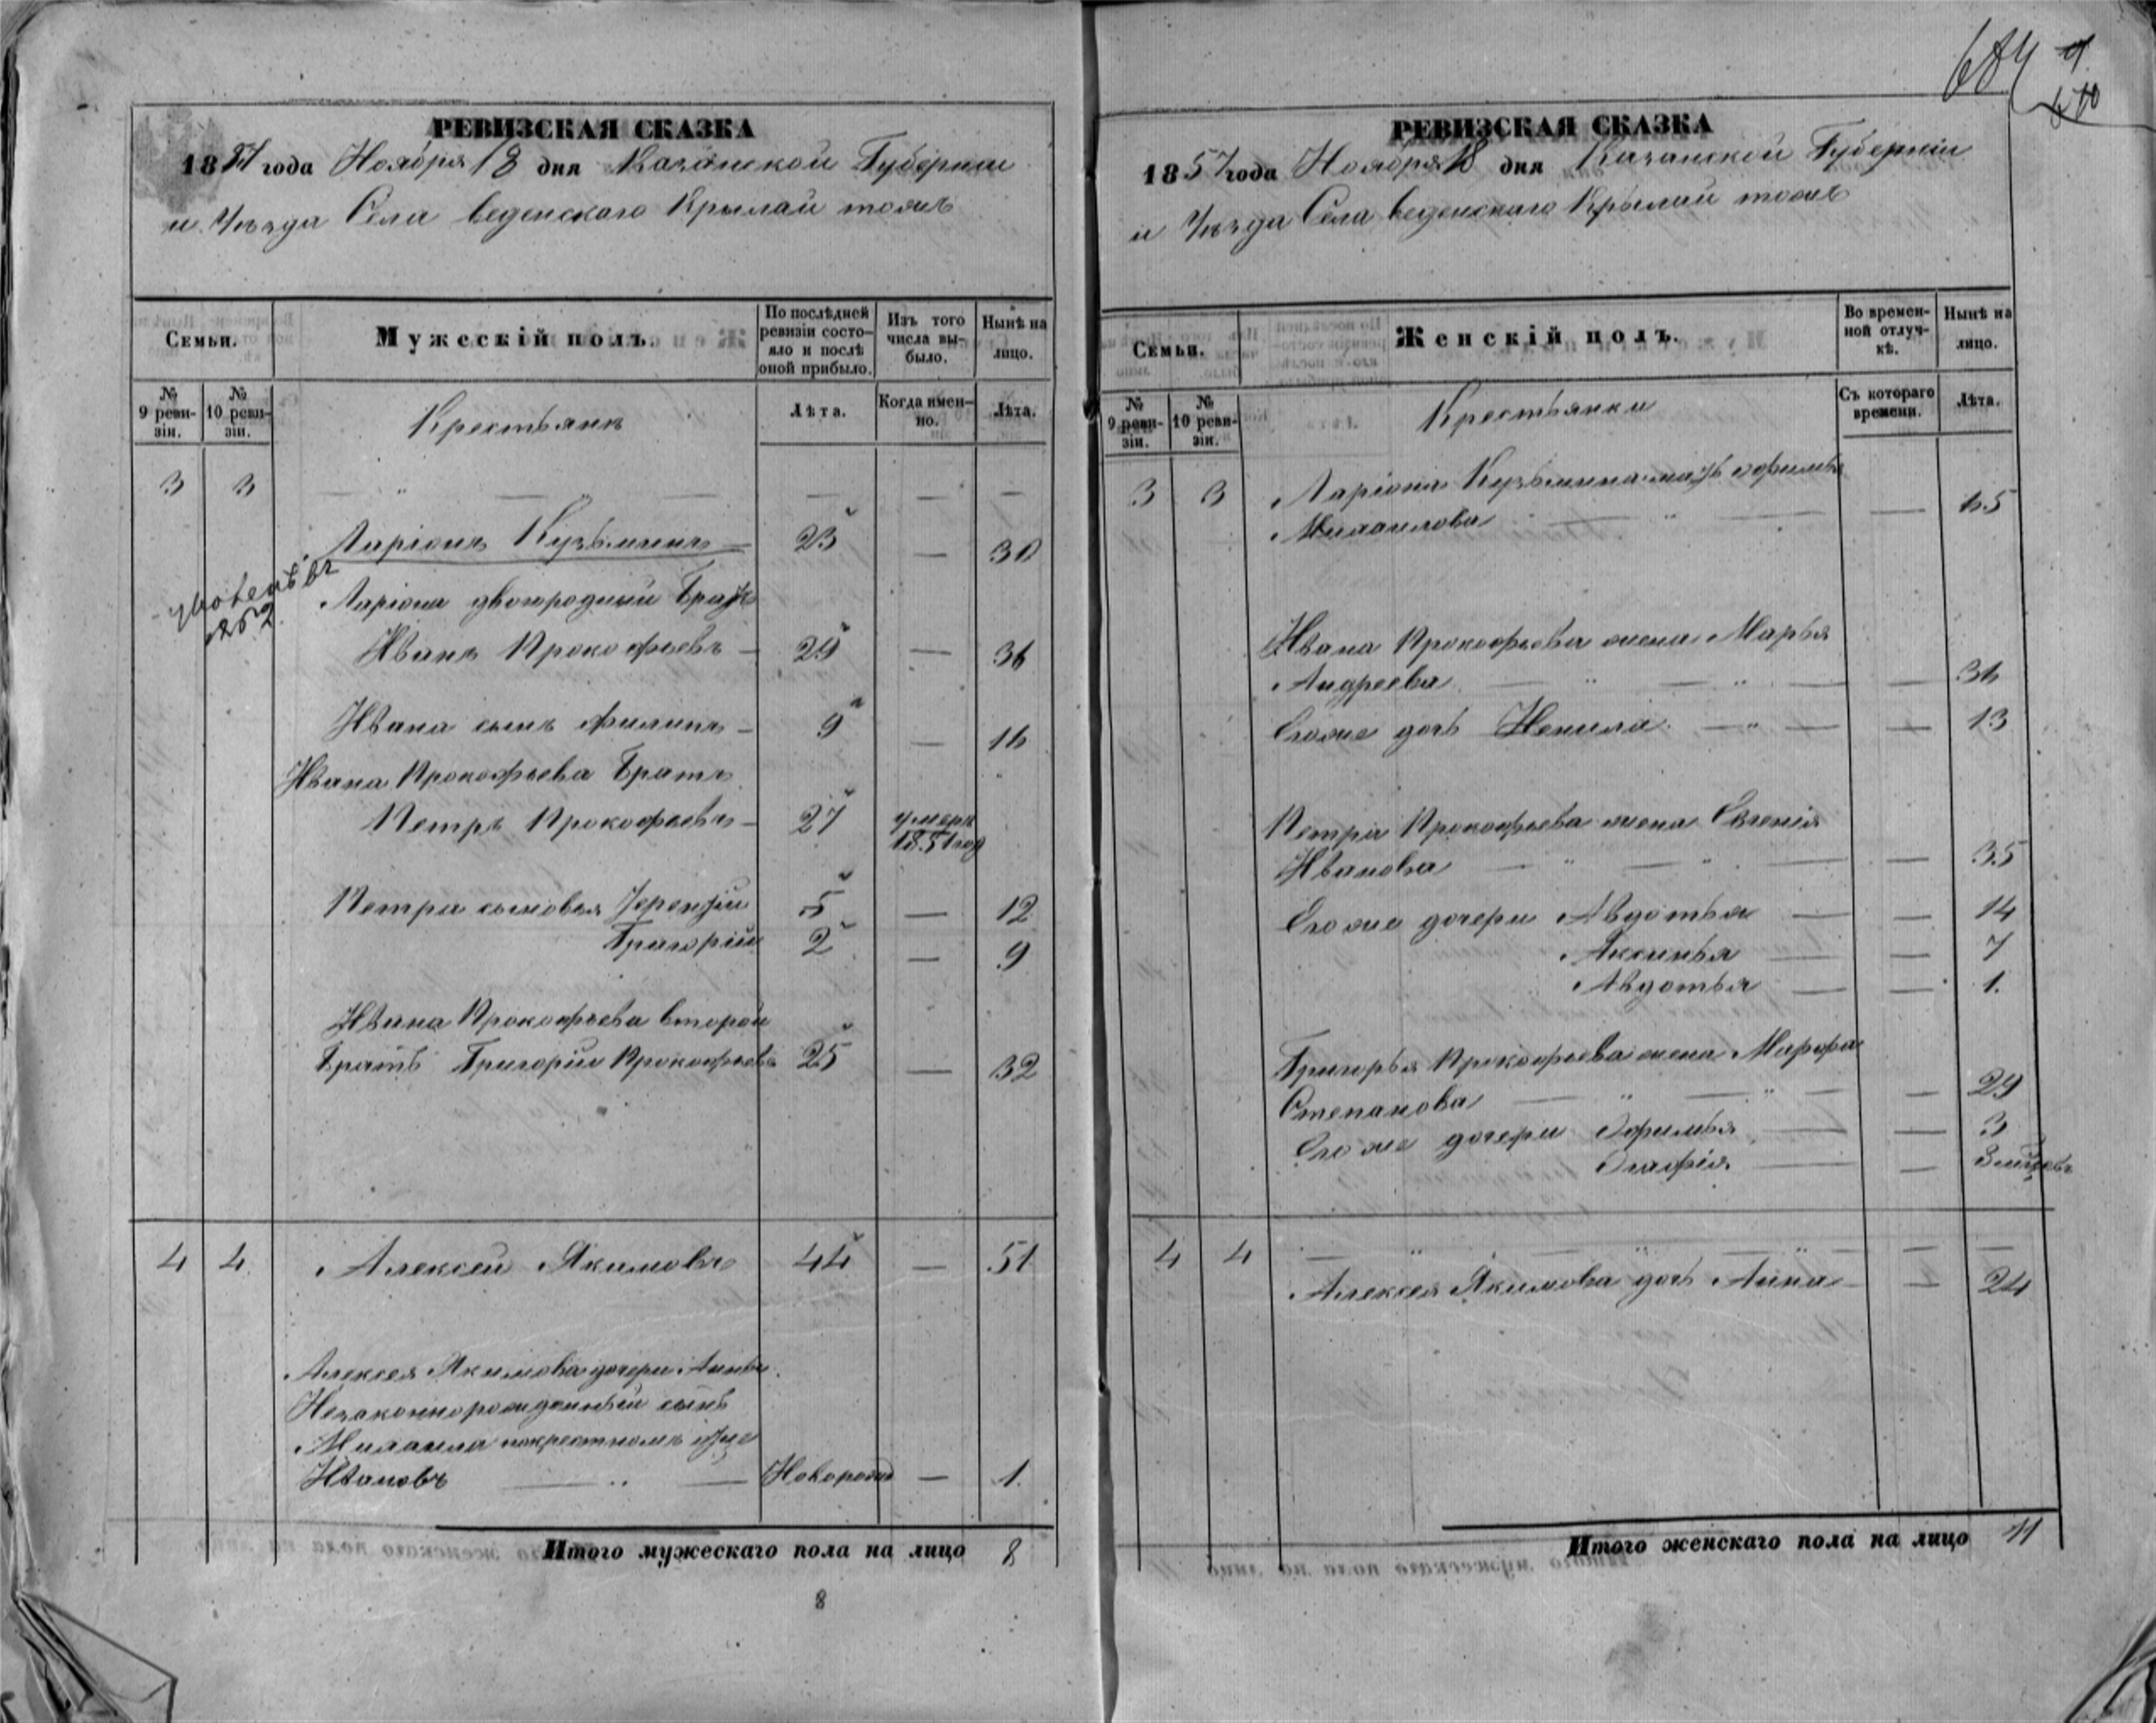 684
РЕВИЗСКАЯ СКАЗКА
1857 года Ноября 18 дня Казанской Губерніи
и Уѣзда Села веденскаго Крылай тожъ
Семьи.
Мужескій полъ.
По послѣдней ревизіи состояло и послѣ оной прибыло.
Изъ того числа выбыло.
Нынѣ на лицо.
№ 9 ревизіи.
№ 10 ревизіи.
Крестьянъ
Лѣта.
Когда именно.
Лѣта.
3 3
Ларіонъ Кузьминъ 23 — 30
Ларіона двоюродный Братъ
Иванъ Прокофьевъ — 29 — 36
Ивана сынъ Филипъ — 9 — 16
Ивана Прокофьева Братъ
Петръ Прокофьевъ — 27 умеръ 1851 год
Петра сыновья Терентій 5 — 12
Григорій 2 — 9
Ивана Прокофьева второй
братъ Григорій Прокофьевъ 25 — 32
4 4 Алексей Якимовъ 44 — 51
Алексея Якимова дочери Анны
Незаконнорожденный сынъ
Михаила покрестномъ отце
Ивановъ — " — Новорожд — 1.
Итого мужескаго пола на лицо 8
8
РЕВИЗСКАЯ СКАЗКА
1857 года Ноября 18 дня Казанской Губерніи
и Уѣзда Села веденскаго Крылай тожъ
Семьи.
Женскій полъ.
Во временной отлучкѣ.
Нынѣ на лицо.
№ 9 ревизіи.
№ 10 ревизіи.
Крестьянки
Съ котораго времени.
Лѣта.
3 3 Ларіона Кузьмина мать Офимья
Михаилова — " — — 65
Ивана Прокофьева жена Марья
Андреева — " — " — — 36
Егоже дочь Ненила — " — — 13
Петра Прокофьева жена Евгенія
Иванова — " — " — — 35
Егоже дочери Авдотья — — 14
Аксинья — — 7
Авдотья — — 1.
Григорья Прокофьева жена Марфа
Степанова — " — " — — 29
Егоже дочери Офимья — — 3
Огафія — — 3 мѣсяцевъ
4 4 — " — " — " — — —
Алексея Якимова дочь Анна — — 24
Итого женскаго пола на лицо 11